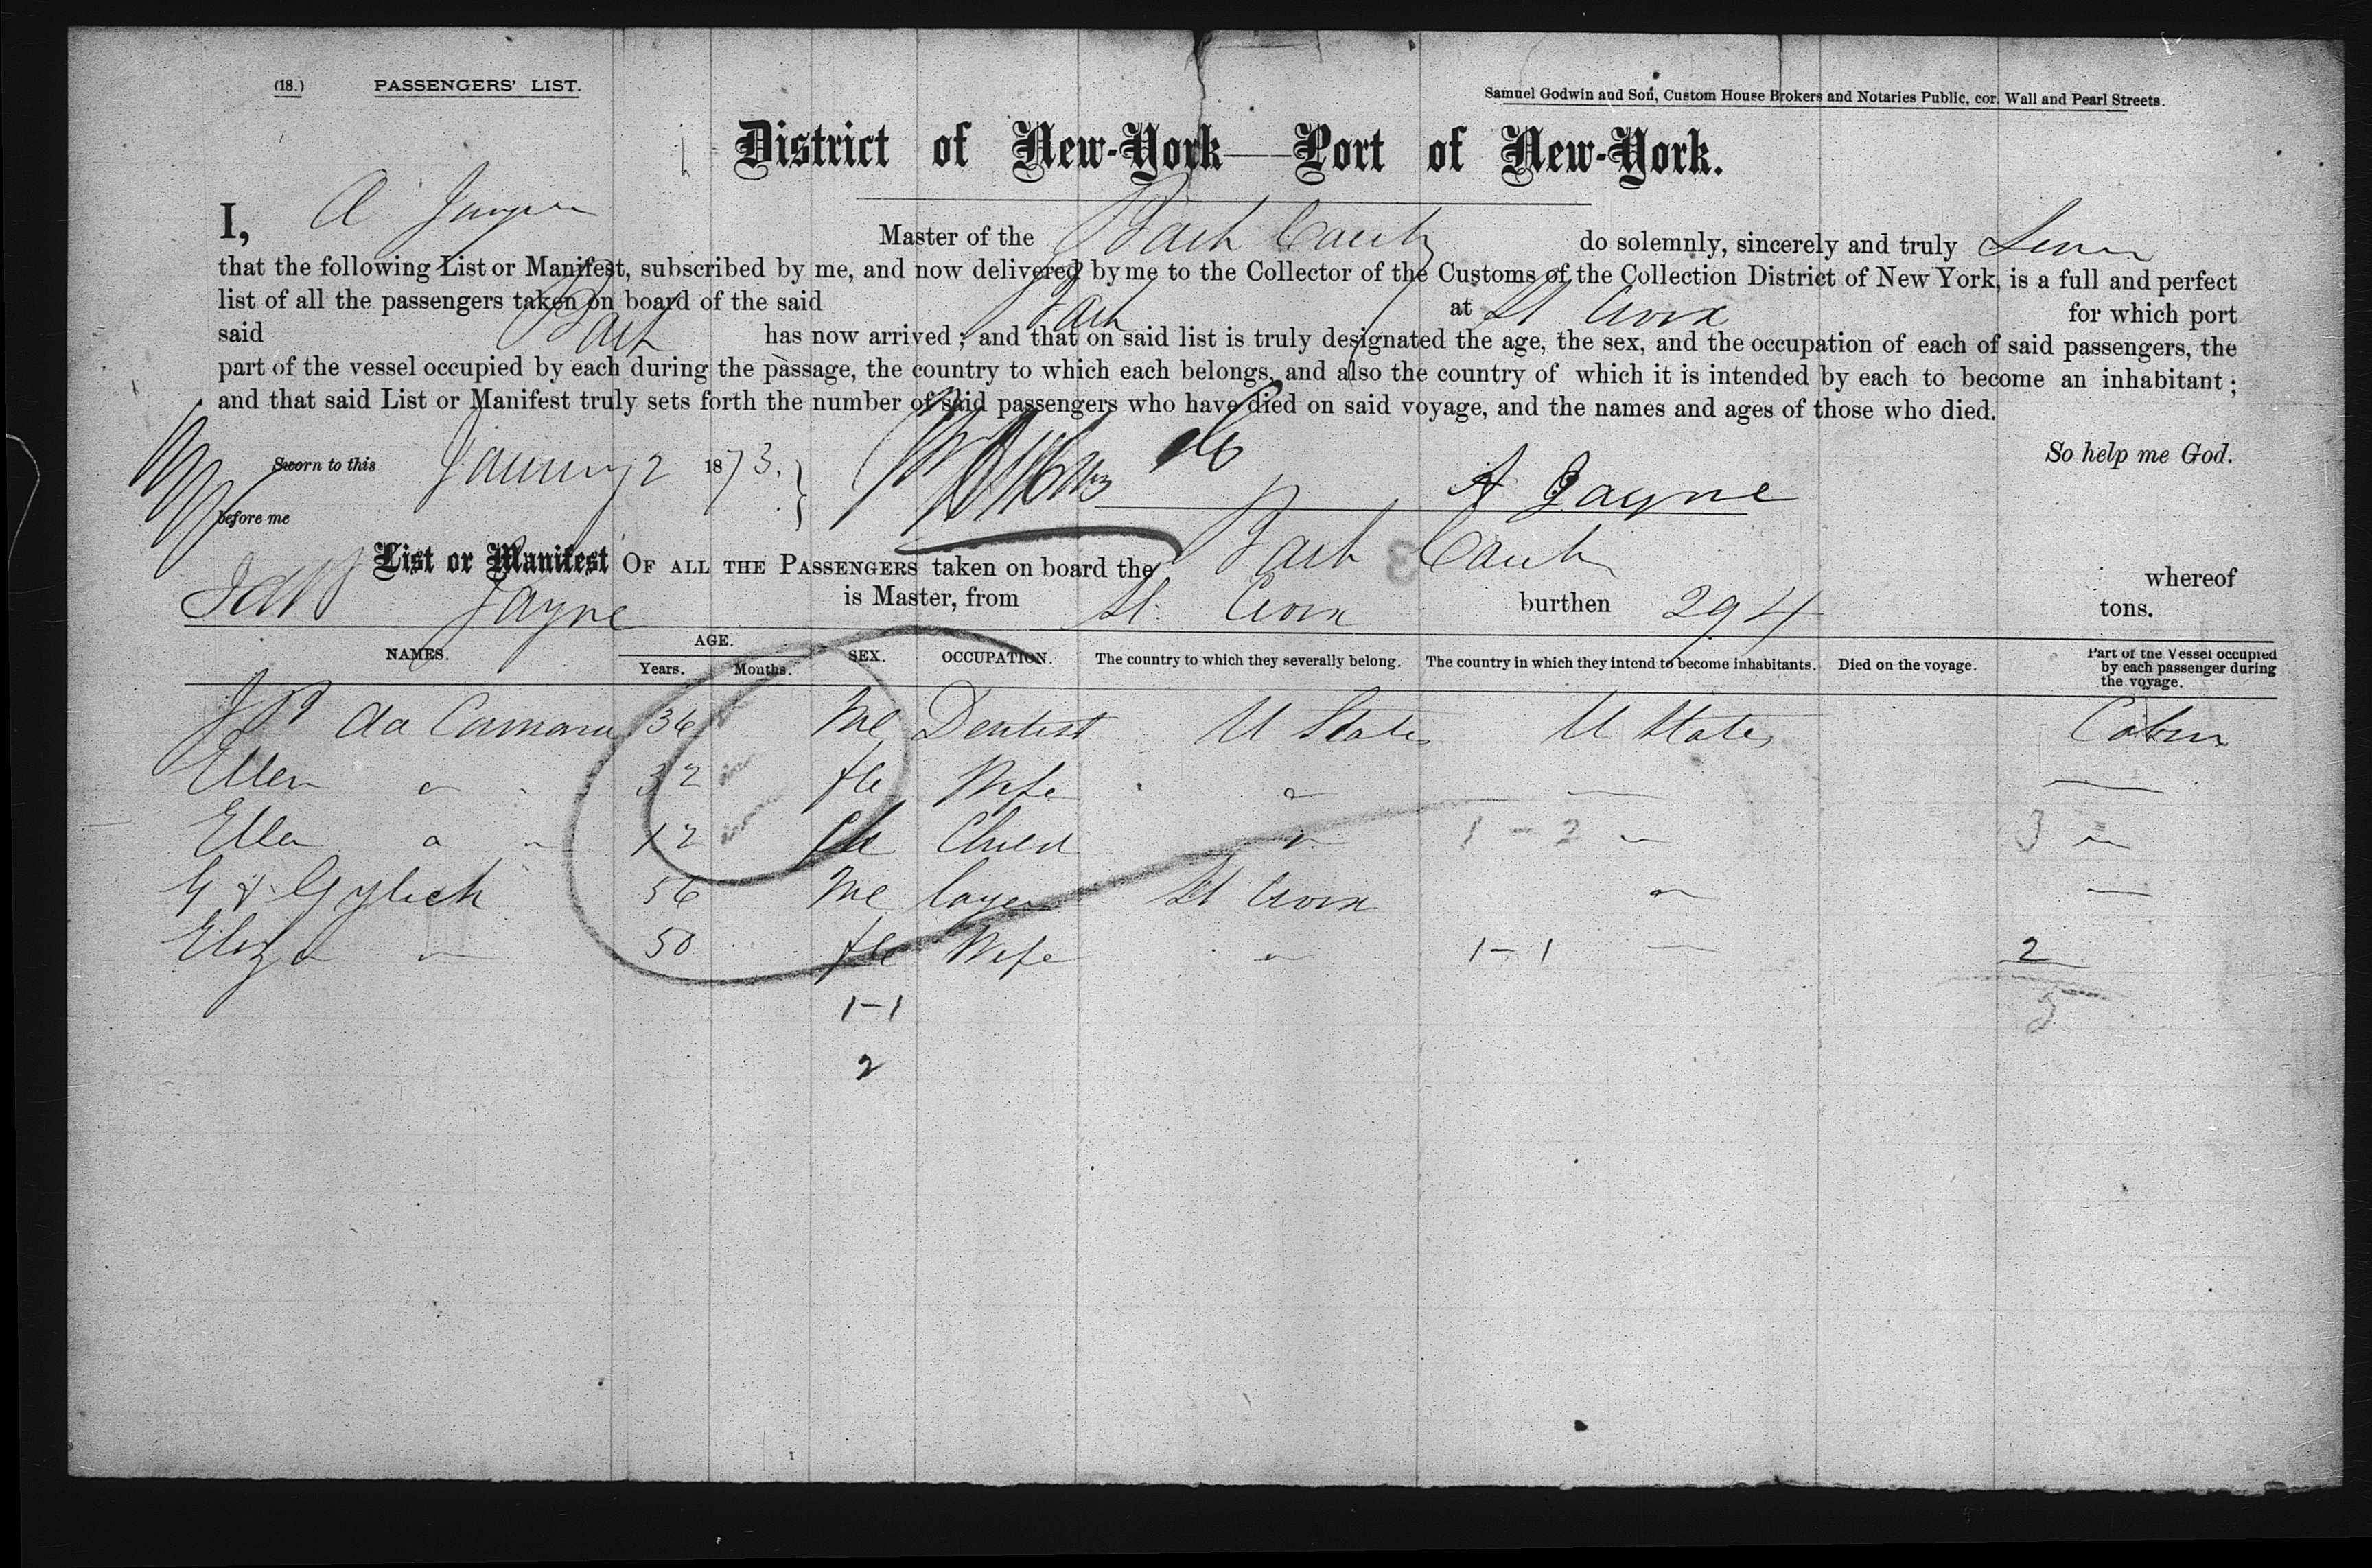 (18.) PASSENGERS' LIST.
Samuel Godwin and Son, Custom House Brokers and Notaries Public, cor. Wall and Pearl Streets.
District of New-York—Port of New-York.
I, A Master of the Bark do solemnly, sincerely and truly Swear
that the following List or Manifest, subscribed by me, and now delivered by me to the Collector of the Customs of the Collection District of New York, is a full and perfect
list of all the passengers taken on board of the said Bark at St Croix for which port
said Bark has now arrived; and that on said list is truly designated the age, the sex, and the occupation of each of said passengers, the
part of the vessel occupied by each during the passage, the country to which each belongs, and also the country of which it is intended by each to become an inhabitant;
and that said List or Manifest truly sets forth the number of said passengers who have died on said voyage, and the names and ages of those who died.
So help me God.
Sworn to this January 2 1873.
A Jayne
before me
List or Manifest OF ALL THE PASSENGERS taken on board the Bark whereof
Jayne is Master, from St. Croix burthen 294 tons.
NAMES. AGE. Years. Months. SEX. OCCUPATION. The country to which they severally belong. The country in which they intend to become inhabitants. Died on the voyage. Part of the Vessel occupied by each passenger during the voyage.
da Camara 36 Me Dentist U States U States Cabin
Ellen " 32 fe Wife " — —
Ellen " " 12 Child " 1 - 2 " 3 "
56 Me St Croix " —
Eliza " 50 fe Wife " 1 - 1 — 2
1-1 5
2